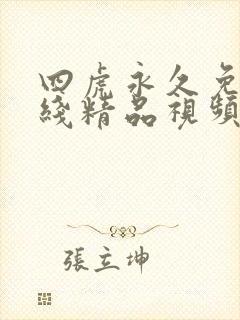 四虎永久免
綫精品視頻
張立坤